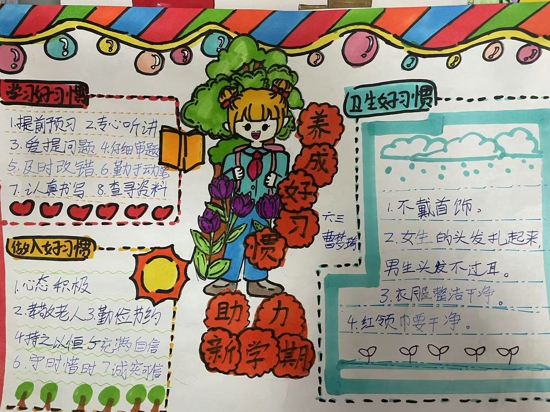 学习好习惯
1.提前预习 2.专心听讲
3.爱提问题 4.仔细审题
5.及时改错 6.勤于动脑
7.认真书写 8.查寻资料
做人好习惯
1.心态积极
2.孝敬老人 3勤俭节约
4持之以恒 5充满自信
6.守时惜时 7诚实可信
养成好习惯
六三
助力
新学期
卫生好习惯
1.不戴首饰。
2.女生的头发扎起来,
男生头发不过耳。
3.衣服整洁干净。
4.红领巾要干净。